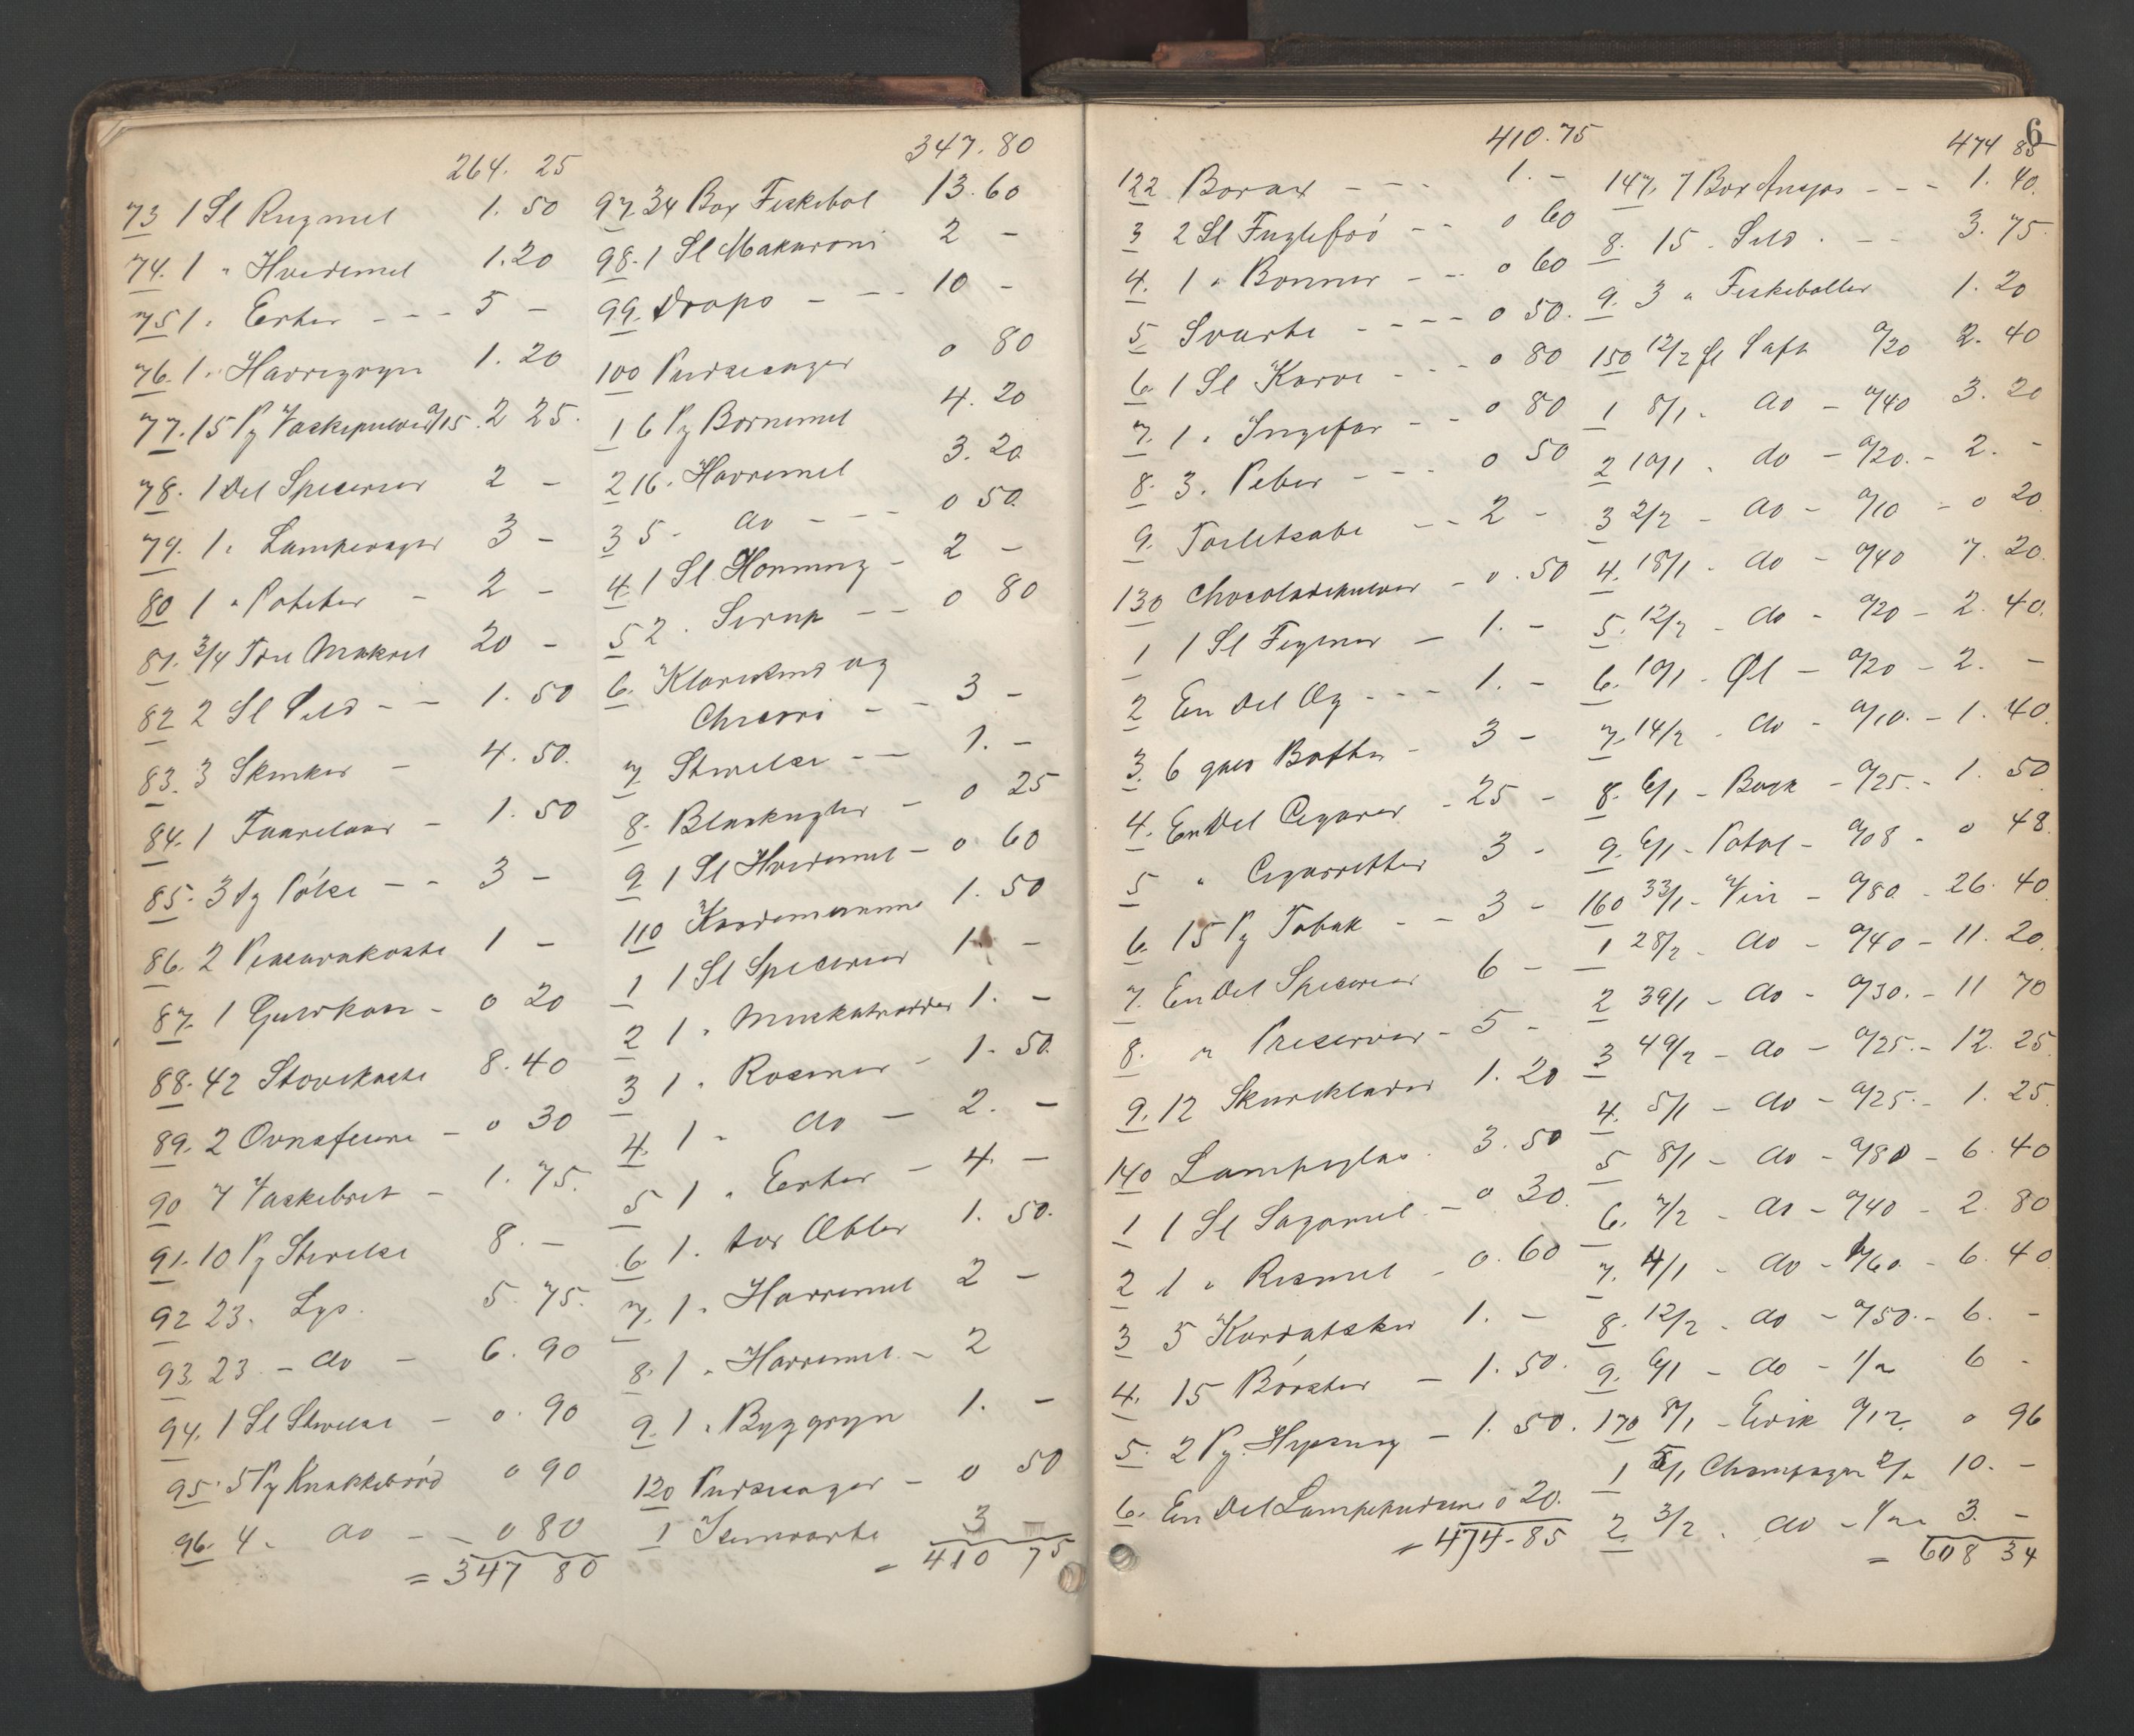 264. 25
73 1 Sl Rugmel 1. 50
74. 1 " Hvedemel 1.20
75 1 " Erter - - - 5 -
76. 1 " Havregryn 1. 20
77. 15 Pg Vaskepulver a/15. 2 25.
78. 1 Del Specerier 2 -
79. 1 " Lampevæger 3 -
80 1 " Poteter - 2 -
81. 3/4 Tøn Makrel 20 -
82 2 Sl Sild - - 1. 50
83. 3 Skinker - 4. 50.
84. 1 Faarelaar - 1. 50
85. 3 Kg Pölse - - 3 -
86. 2 Piasavakoste 1 -
87. 1 Gulvkost - 0 20
88. 42 Stovekoste 8. 40
89. 2 Ovnsfeiere - 0 30
90 7 Vaskebret - 1. 75.
91. 10 Pg Stivelse 8. -
92 23. Lys. 5. 75.
93. 23 - do - 6. 90
94. 1 Sl Stivelse - 0. 90
95. 5 Pg Knækkebröd 0 90
96. 4. do - - 0 80
= 347 80
347. 80
97. 34 Box Fiskebol 13. 60
98. 1 Sl Makaroni 2 -
99. Drops - - - 10 -
100 Pudsesager 0 80
1 6 Pg Bornemel 4. 20
2 16. Havremel 3. 20
3 5 - do - - - 0 50.
4. 1 Sl Honning - 2 -
5 2. Sirup - - 0 80
6. Klareskind og
Chicori - - 3 -
7 Stivelse - - 1. -
8. Blaakugler - 0 25
9 1 Sl Hvedemel - 0. 60
110 Kardemomme 1. 50
1 1 Sl Specerier 1. -
2 1 " Muskatnødder 1. -
3 1 " Rosiner - 1. 50.
4. 1 " do - 2. -
5 1 " Erter - 4. -
6. 1. tør Æbler 1. 50.
7. 1 " Havremel 2 -
8. 1 " Havremel - 2
9. 1 " Byggryn 1. -
120 Pudsesager - 0 50
1 Jernvarte 3 -
= 410 75
6
410. 75
122 Borax - - - 1. -
3 2 Sl Fuglefrö - - 0 60
4. 1 " Bonner - - 0 60
5 Sværte - - - - 0 50.
6. 1 Sl Karve - - - 0 80
7. 1 " Ingefær - - 0 80
8. 3. Peber - - - 0 50
9. Toiletsæbe - - 2 -
130 Chocoladepulver - 0. 50
1 1 Sl Figener - 1. -
2 En Del Æg - - - 1. -
3. 6 glas Bothn - 3 -
4. En Del Cigarer - 25 -
5 " Cigaretter 3 -
6. 15 Pg Tobak - - 3 -
7. En Del Specerier 6 -
8. " Preserver - 5 -
9. 12 Skureklader 1. 20
140 Lampeglas. 3. 50
1 1 Sl Sagomel - 0 30.
2 1 " Rismel - 0. 60
3 5 Kardætsker 1. -
4. 15 Börster - 1. 50.
5. 2 Pg. Hyssing - 1. 50.
6. En Del Lampepudsere 0 20.
= 474. 85
474 85
147. 7 Box Ansjos - - - 1. 40.
8. 15 - Sild. - - 3. 75.
9. 3 " Fiskeboller 1. 20
150 12/2 fl Saft a/20 2. 40
1 8/1 - do - a/40 3. 20
2 10/1 - do - a/20. - 2. -
3 2/2 - do - a/10 - 0 20
4. 18/1 - do - a/40 7. 20.
5. 12/2 - do - a/20 - 2. 40.
6. 10/1 - Øl - a/20 - 2. -
7. 14/2 - do - a/10. - 1. 40.
8. 6/1 - Bock - a/25. - 1. 50
9. 6/1 - Potol - a/08 - 0 48.
160 33/1 - Vin - a/80 - 26. 40
1 28/2 - do - a/40 - 11. 20.
2 39/1 - do - a/30. - 11 70
3 49/2 - do - a/25. - 12. 25
4. 5/1 - do - a/25. - 1. 25.
5 8/1 - do - a/80 - 6. 40
6. 7/2 - do - a/40 - 2. 80
7. 4/1 - do - 1/60. - 6. 40.
8. 12/2 - do - a/50. - 6. -
9. 6/1 - do - 1/" 6 -
170 8/1 - Edik a/12. 0 96
1 5/1 Champagne 2/" 10. -
2. 3/2. do - 1/" 3. -
= 608 34